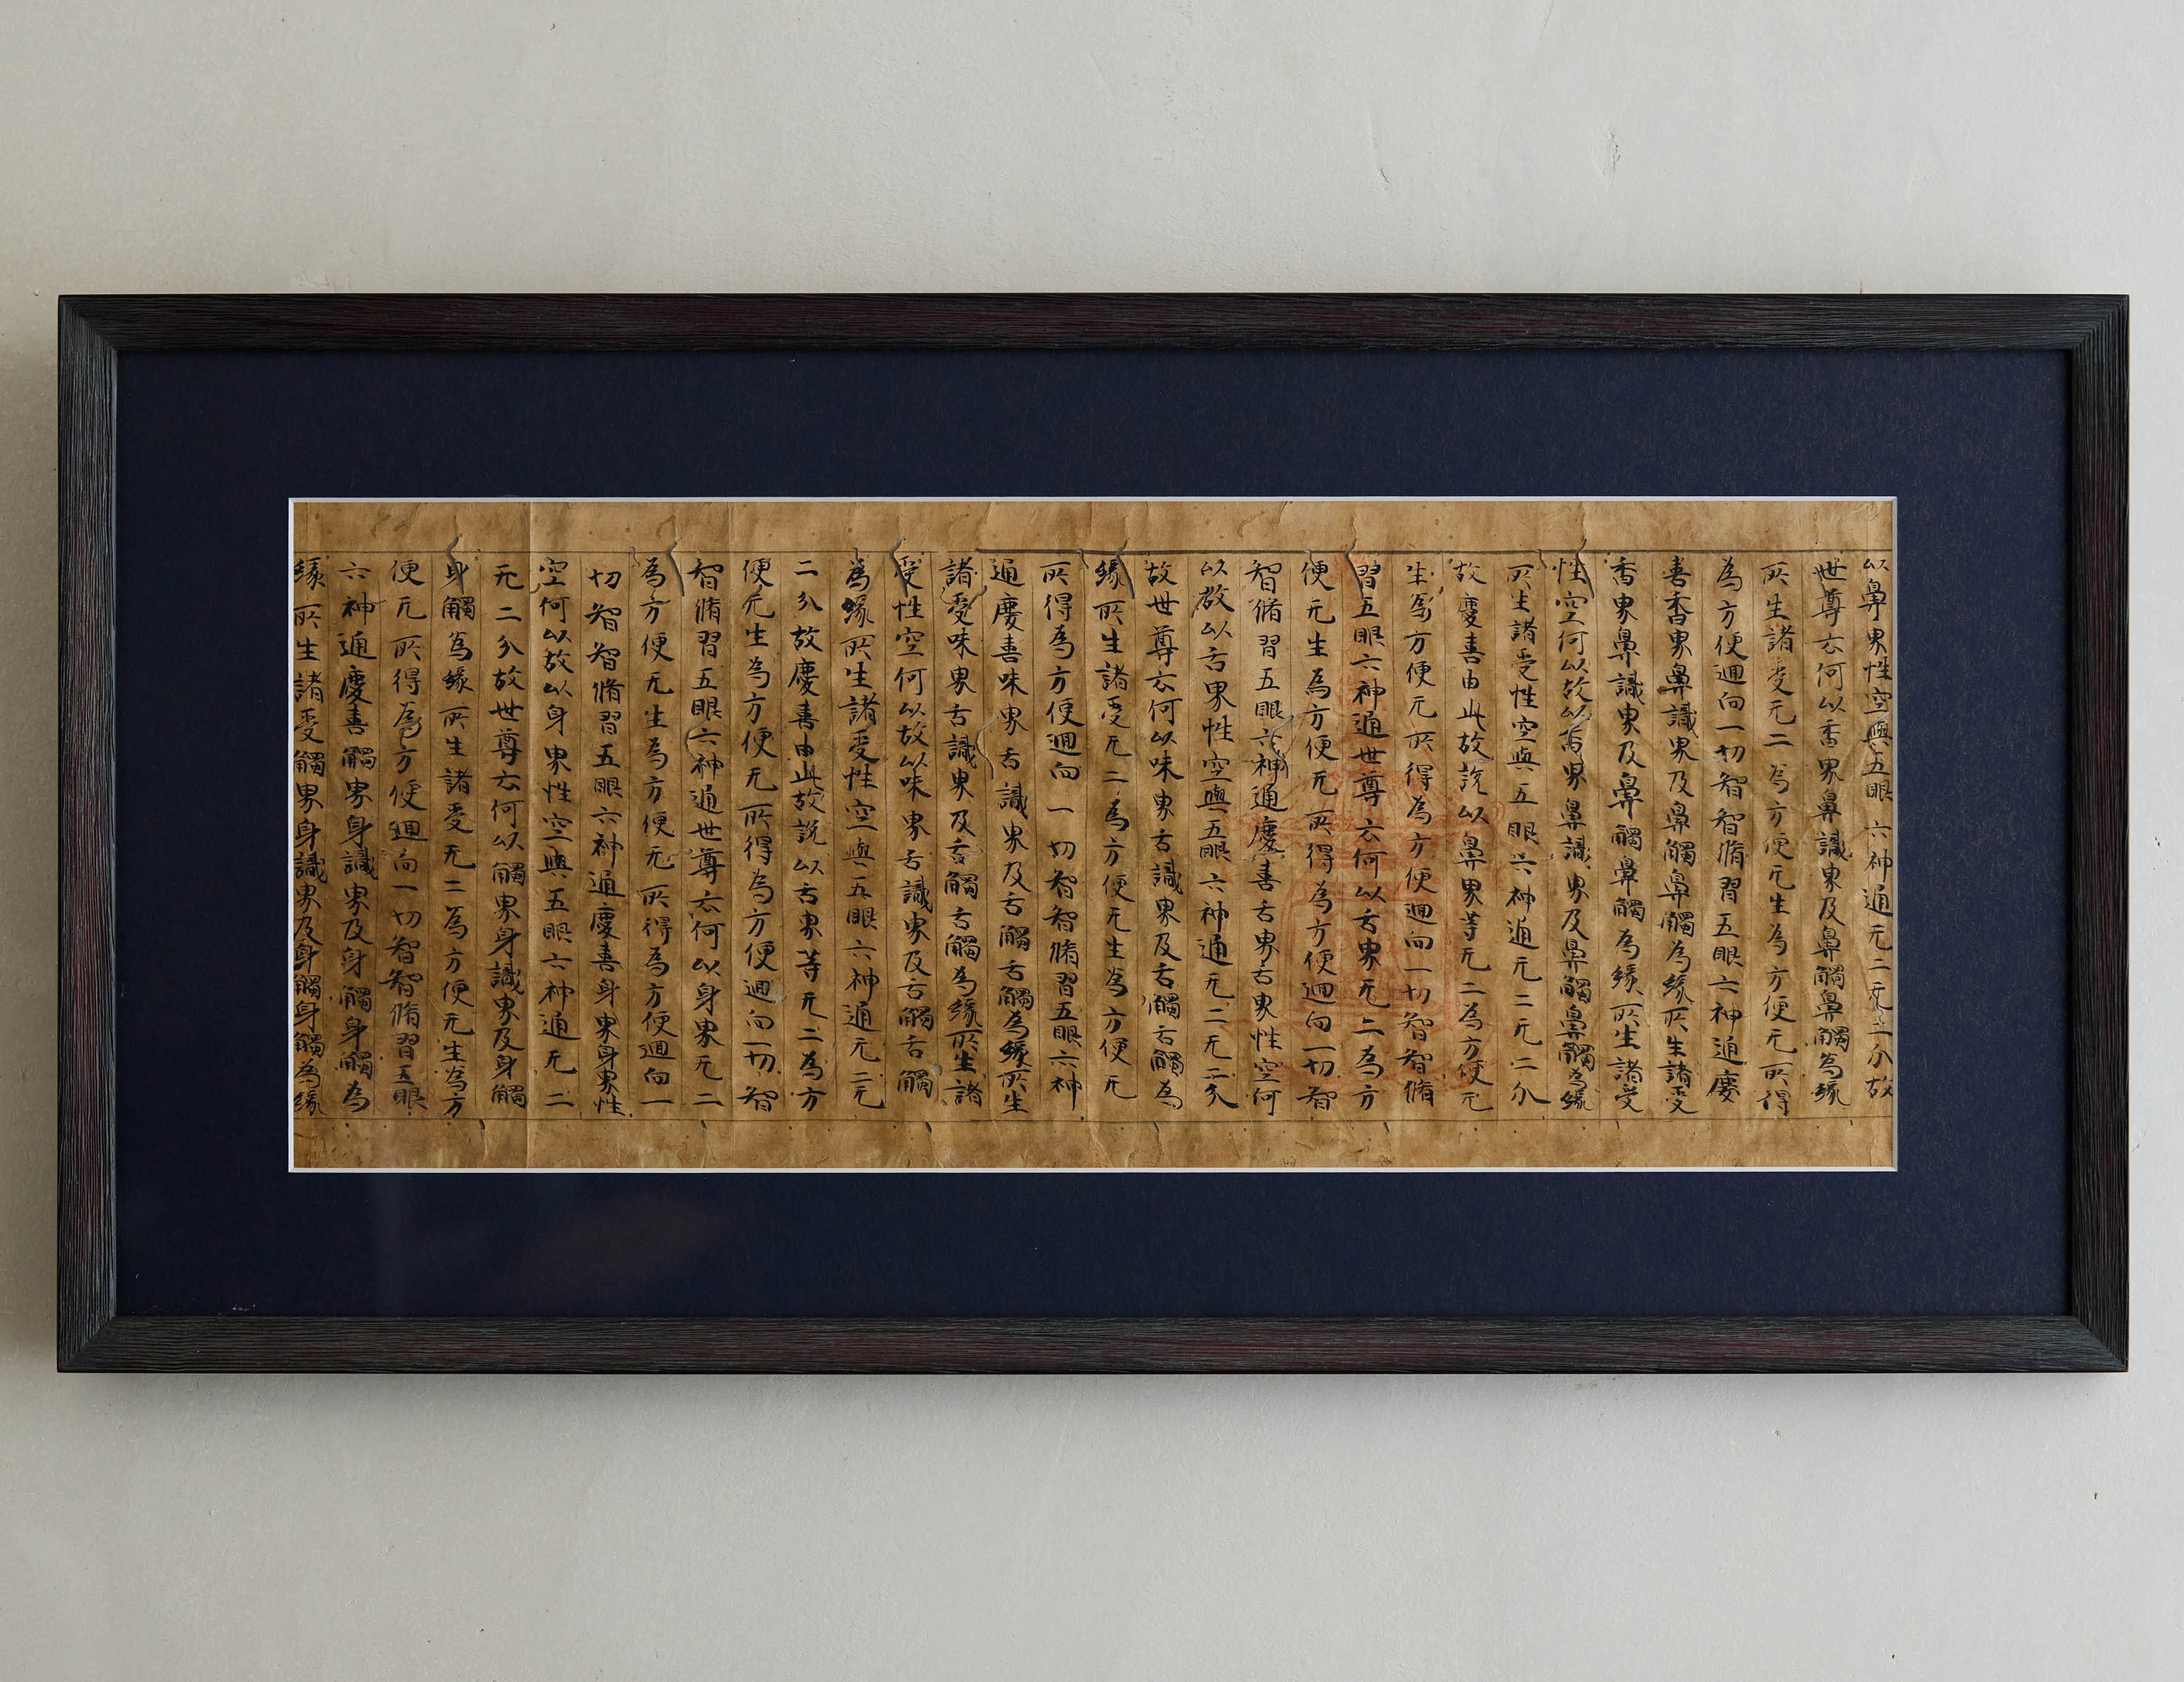 以鼻界性空與五眼六神通无二无二分故
世尊云何以香界鼻識界及鼻觸鼻觸為緣
所生諸受无二為方便无生為方便无所得
為方便迴向一切智智脩習五眼六神通慶
喜香界鼻識界及鼻觸鼻觸為緣所生諸受
香界鼻識界及鼻觸鼻觸為緣所生諸受
性空何以故以香界鼻識界及鼻觸鼻觸為緣
所生諸受性空與五眼六神通无二无二分
故慶喜由此故說以鼻界等无二為方便无
生為方便无所得為方便迴向一切智智脩
習五眼六神通世尊云何以舌界无二為方
便无生為方便无所得為方便迴向一切智
智脩習五眼六神通慶喜舌界舌界性空何
以故以舌界性空與五眼六神通无二无二分
故世尊云何以味界舌識界及舌觸舌觸為
緣所生諸受无二為方便无生為方便无
所得為方便迴向一切智智脩習五眼六神
通慶喜味界舌識界及舌觸舌觸為緣所生
諸受味界舌識界及舌觸舌觸為緣所生諸
受性空何以故以味界舌識界及舌觸舌觸
為緣所生諸受性空與五眼六神通无二无
二分故慶喜由此故說以舌界等无二為方
便无生為方便无所得為方便迴向一切智
智脩習五眼六神通世尊云何以身界无二
為方便无生為方便无所得為方便迴向一
切智智脩習五眼六神通慶喜身界身界性
空何以故以身界性空與五眼六神通无二
无二分故世尊云何以觸界身識界及身觸
身觸為緣所生諸受无二為方便无生為方
便无所得為方便迴向一切智智脩習五眼
六神通慶喜觸界身識界及身觸身觸為
緣所生諸受觸界身識界及身觸身觸為緣